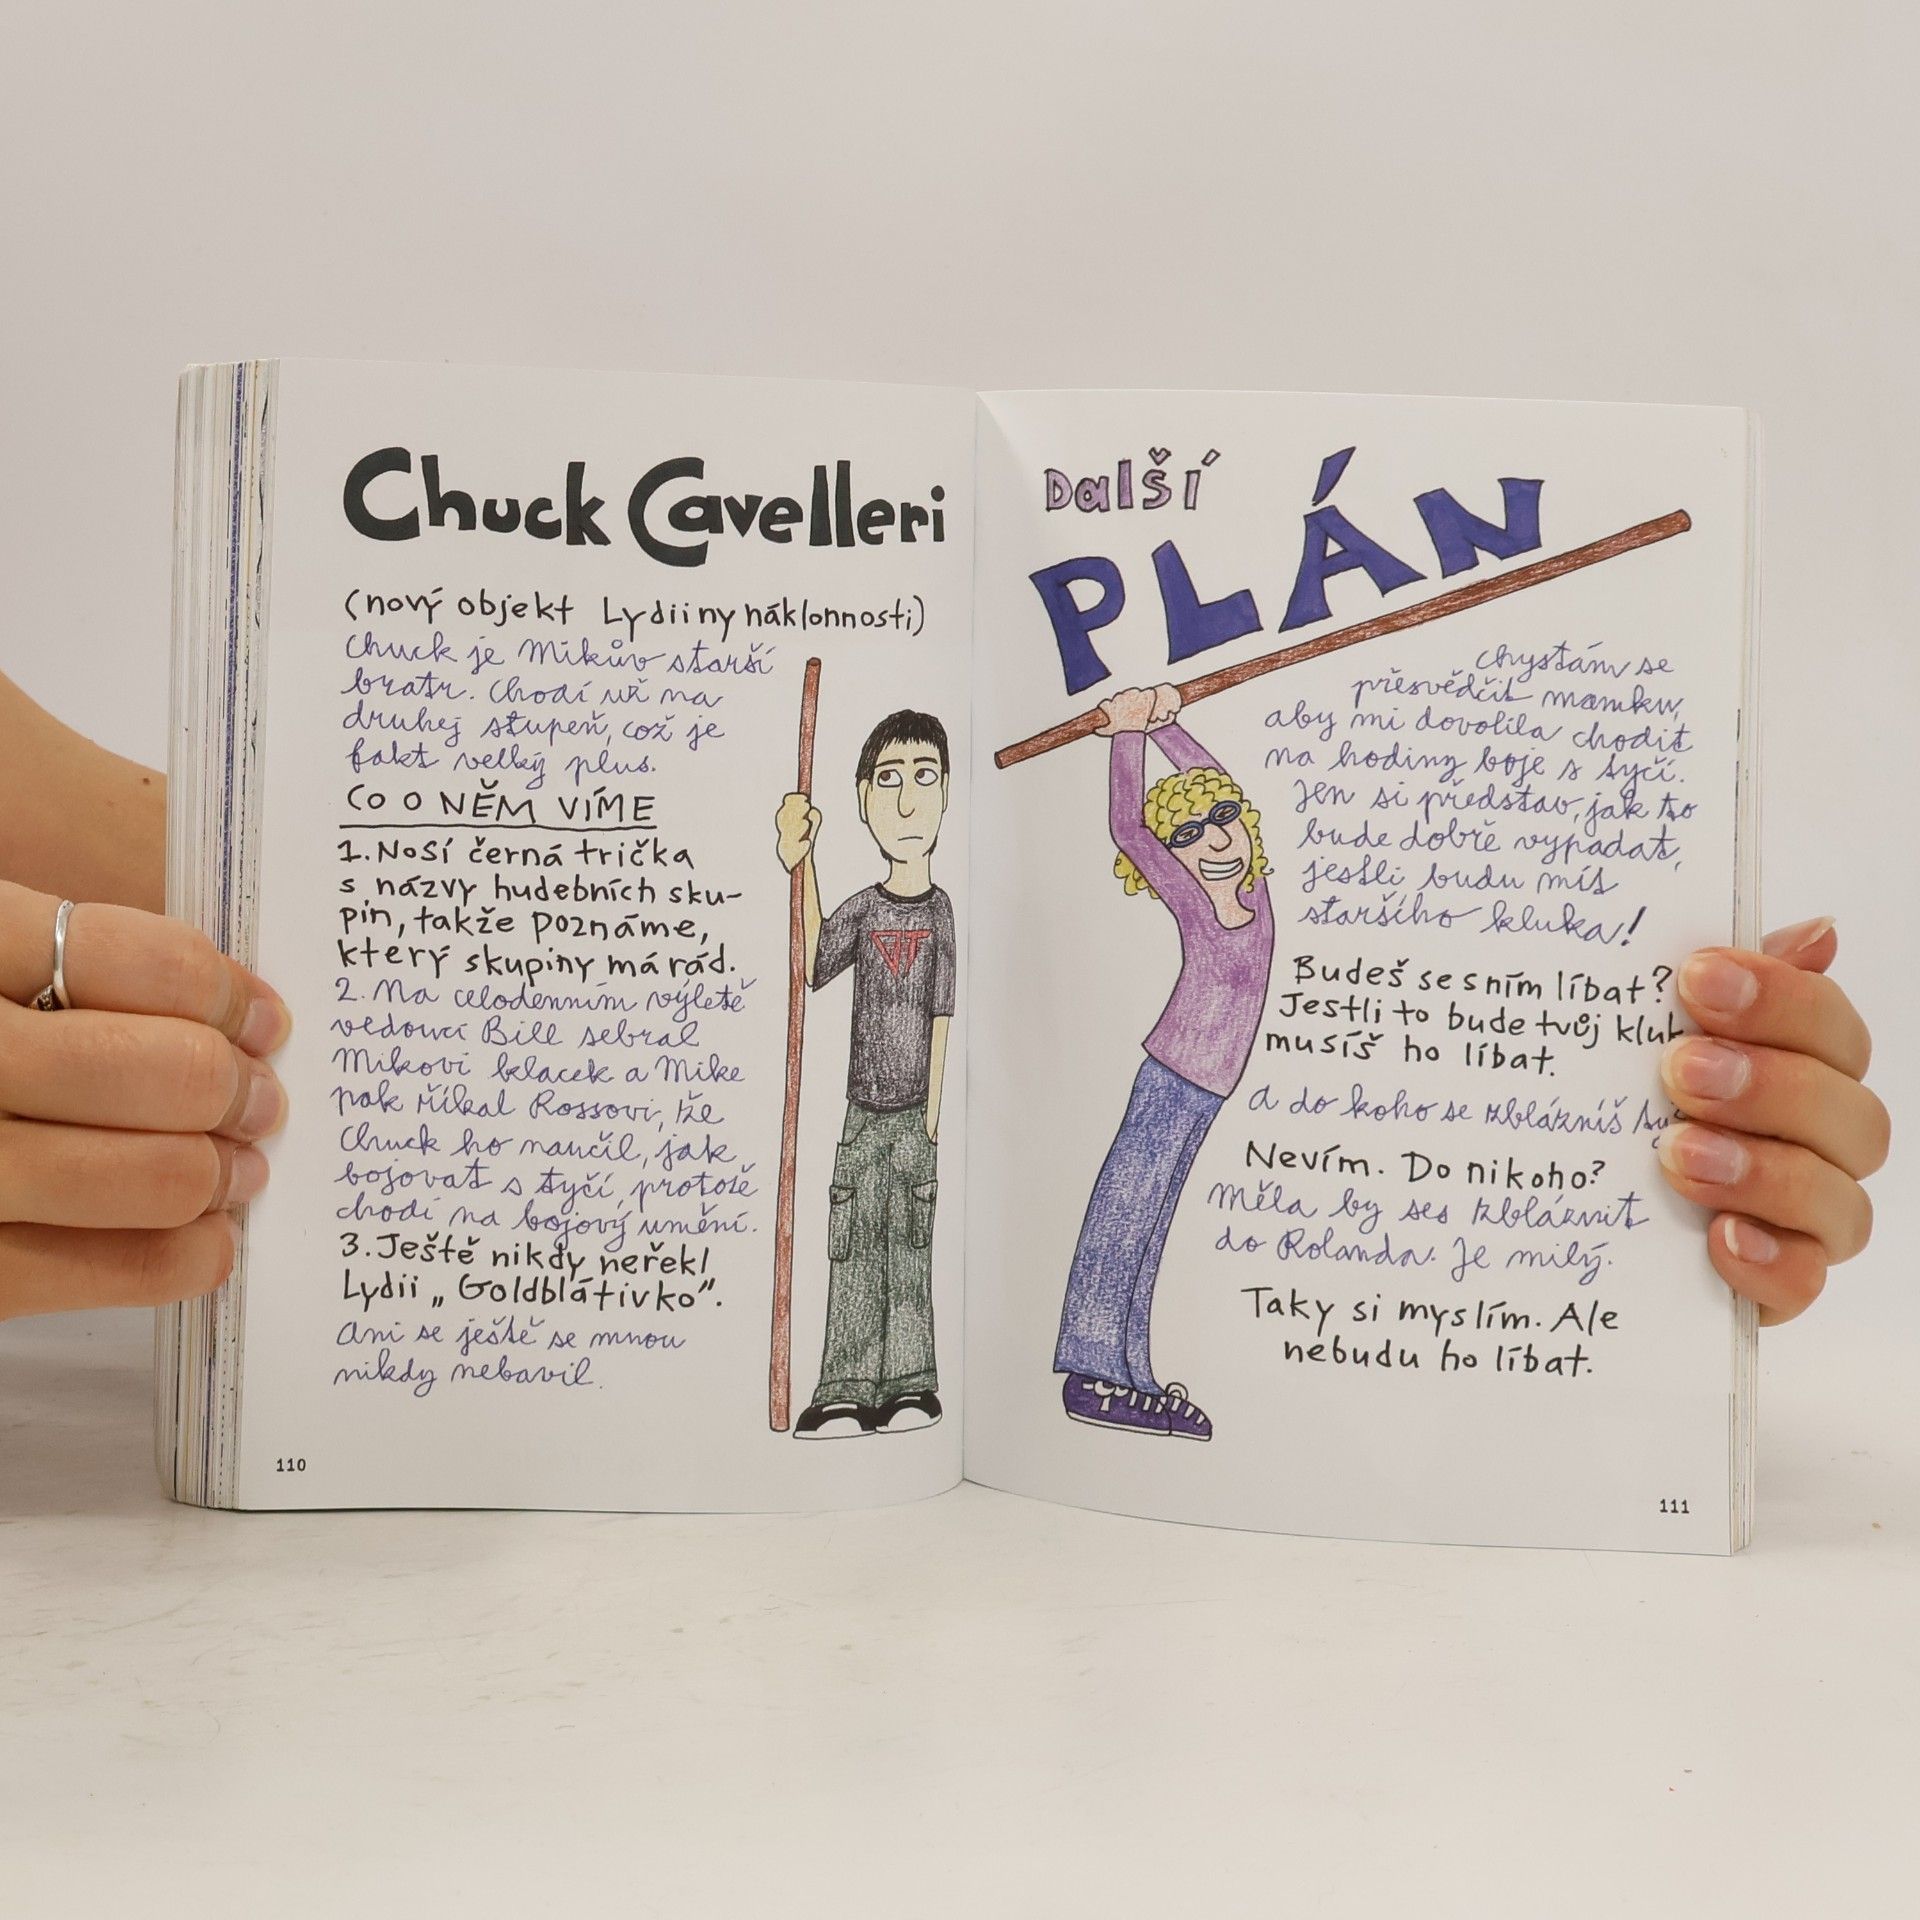 Chuck Cavelleri
(nový objekt Lydiiny náklonnosti)
Chuck je Mikův starší
bratr. Chodí už na
druhej stupeň, což je
fakt velký plus.
CO O NĚM VÍME
1. Nosí černá trička
s názvy hudebních sku-
pin, takže poznáme,
který skupiny má rád.
2. Na celodenním výletě
vedoucí Bill sebral
Mikovi klacek a Mike
pak říkal Rossovi, že
Chuck ho naučil, jak
bojovat s tyčí, protože
chodí na bojový umění.
3. Ještě nikdy neřekl
Lydii „Goldblátivko“.
Ani se ještě se mnou
nikdy nebavil.
110
Další
PLÁN
Chystám se
přesvědčit mamku,
aby mi dovolila chodit
na hodiny boje s tyčí.
Jen si představ, jak to
bude dobře vypadat,
jestli budu mít
staršího kluka!
Budeš se s ním líbat?
Jestli to bude tvůj kluk
musíš ho líbat.
A do koho se zblázníš ty?
Nevím. Do nikoho?
Měla by ses zbláznit
do Rolanda. Je milý.
Taky si myslím. Ale
nebudu ho líbat.
111